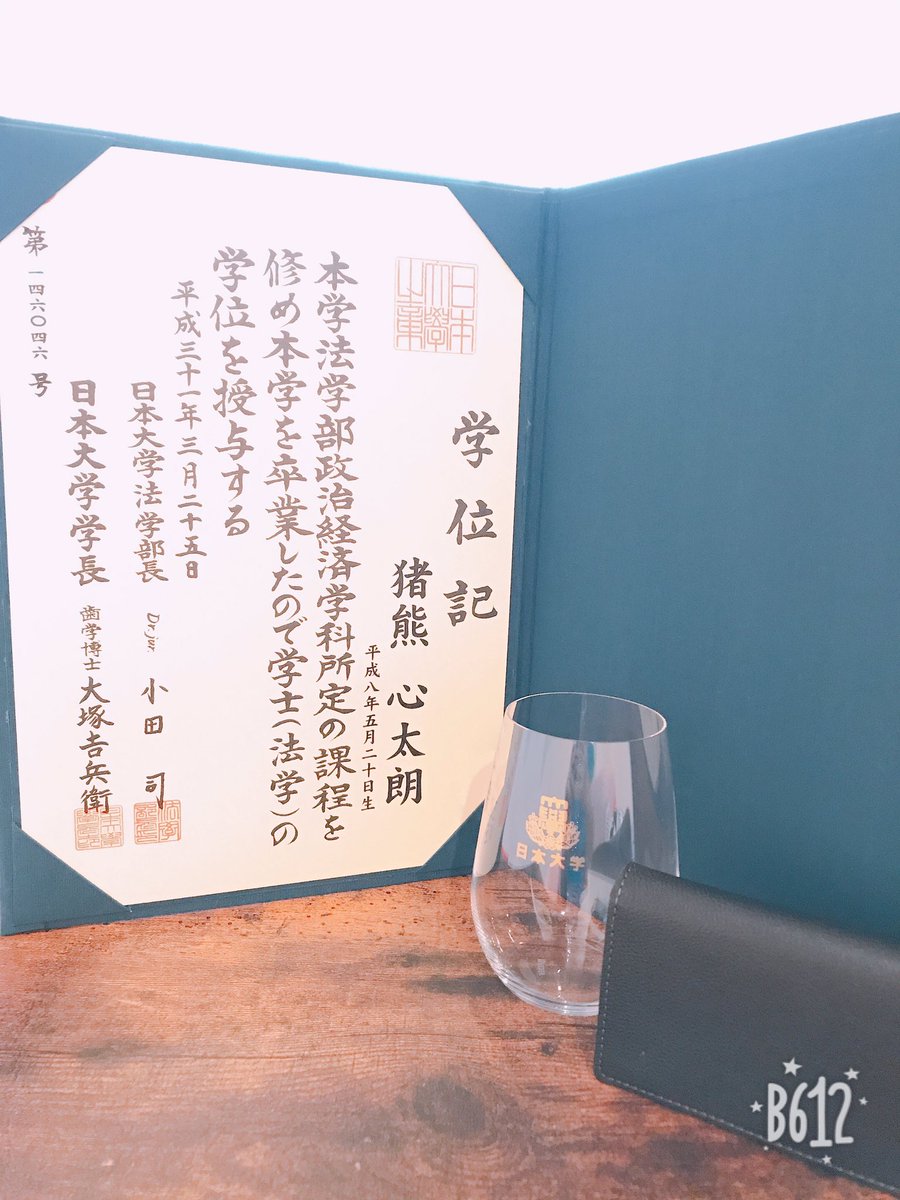 学位記
猪熊 心太朗
平成八年五月二十日生
本学法学部政治経済学科所定の課程を
修め本学を卒業したので学士(法学)の
学位を授与する
平成三十一年三月二十五日
日本大学法学部長 Dr.jur. 小田 司
日本大学学長 歯学博士 大塚吉兵衛
第一四六〇四六号
日本大学
B612